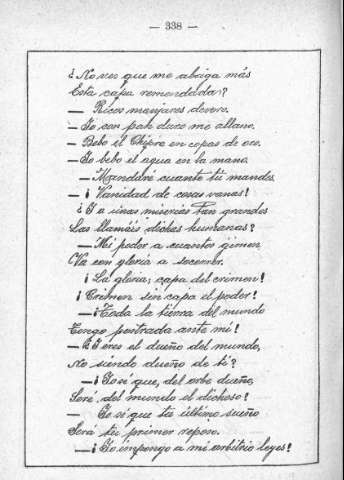 — 338 —
¿No ves que me abriga más
Esta capa remendada?
— Ricos manjares devoro.
— Yo con pan duro me allano.
— Bebo el Chipre en copas de oro.
— Yo bebo el agua en la mano.
— Mandaré cuanto tú mandes.
— ¡Vanidad de cosas vanas!
¿Y a unas miserias tan grandes
Las llamáis dichas humanas?
— Mi poder a cuantos gimen
Va con gloria a socorrer.
¡La gloria; capa del crimen!
¡Crimen sin capa el poder!
— ¡Toda la tierra del mundo
Tengo postrada ante mí!
— ¿Y eres el dueño del mundo,
No siendo dueño de ti?
— ¡Yo sé que, del orbe dueño,
Seré del mundo el dichoso!
— Yo sé que tu último sueño
Será tu primer reposo.
— ¡Yo impongo a mi arbitrio leyes!